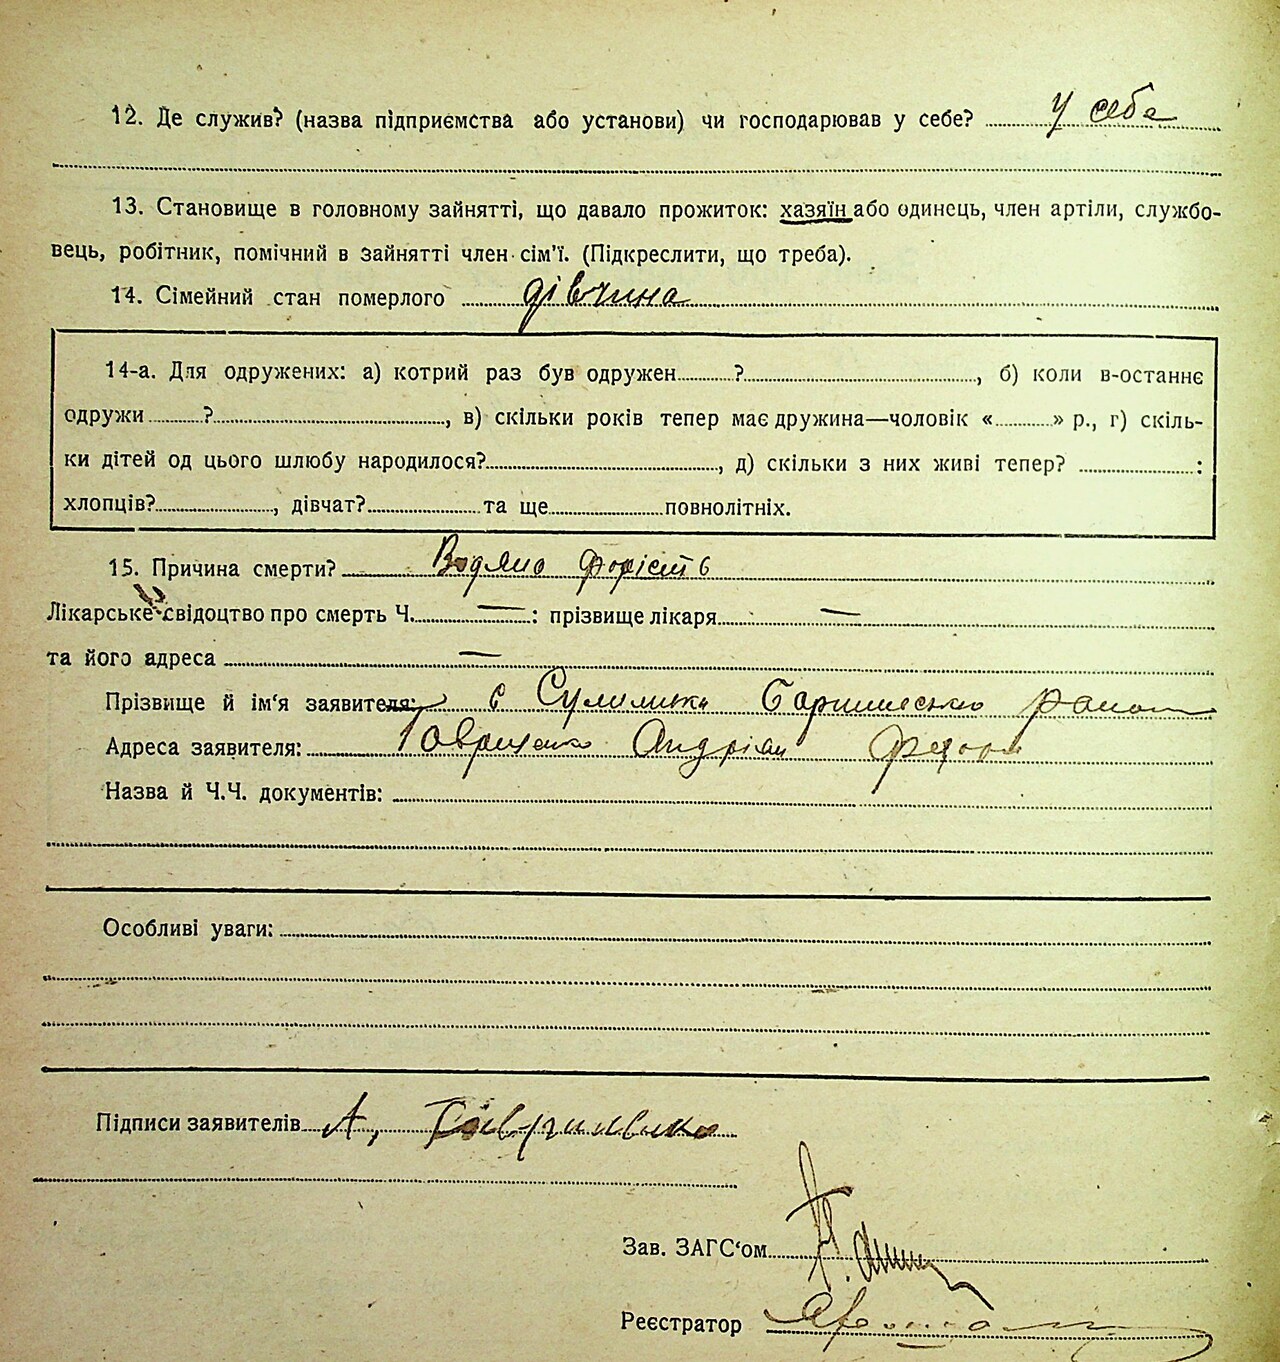 12. Де служив? (назва підприємства або установи) чи господарював у себе? У себе
13. Становище в головному зайнятті, що давало прожиток: хазяїн або одинець, член артіли, службо-
вець, робітник, помічний в зайнятті член сім’ї. (Підкреслити, що треба).
14. Сімейний стан померлого дівчина
14-а. Для одружених: а) котрий раз був одружен ? , б) коли в-останнє
одружи ? , в) скільки років тепер має дружина—чоловік « » р., г) скіль-
ки дітей од цього шлюбу народилося? , д) скільки з них живі тепер? :
хлопців? , дівчат? та ще повнолітніх.
15. Причина смерти? Водяна
Лікарське свідоцтво про смерть Ч. — : прізвище лікаря —
та його адреса —
Прізвище й ім‘я заявителя: с Сулимівка район
Адреса заявителя: Андріан
Назва й Ч.Ч. документів:
Особливі уваги:
Підписи заявителів А,
Зав. ЗАГС‘ом
Реєстратор